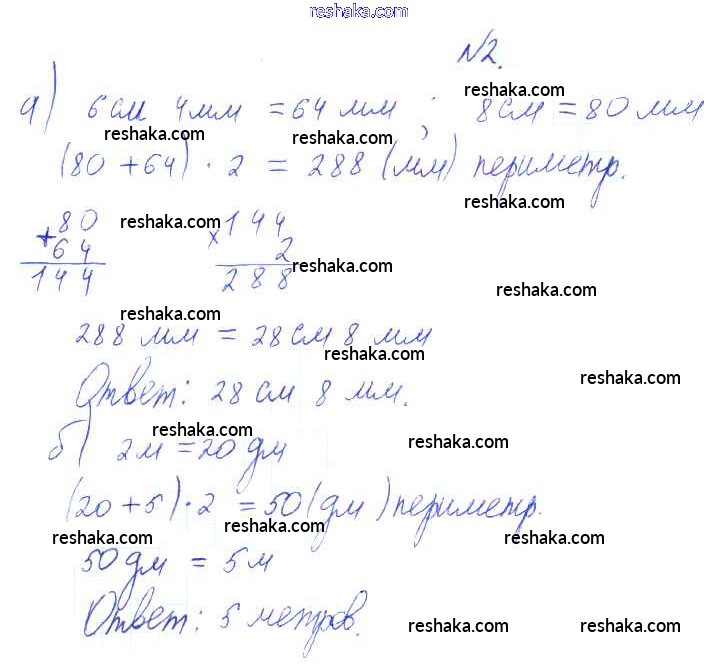 reshaka.com
№2.
reshaka.com
а) 6см 4мм = 64 мм ; 8см = 80 мм
reshaka.com reshaka.com reshaka.com
(80 + 64) · 2 = 288 (мм) периметр.
reshaka.com
80 reshaka.com 144
+ 64 × 2
144 288 reshaka.com
reshaka.com
reshaka.com
288 мм = 28 см 8 мм
reshaka.com
reshaka.com
Ответ: 28 см 8 мм.
reshaka.com
б) 2м = 20 дм
reshaka.com
reshaka.com
(20 + 5) · 2 = 50 (дм) периметр.
reshaka.com reshaka.com reshaka.com
50 дм = 5 м
Ответ: 5 метров.
reshaka.com reshaka.com